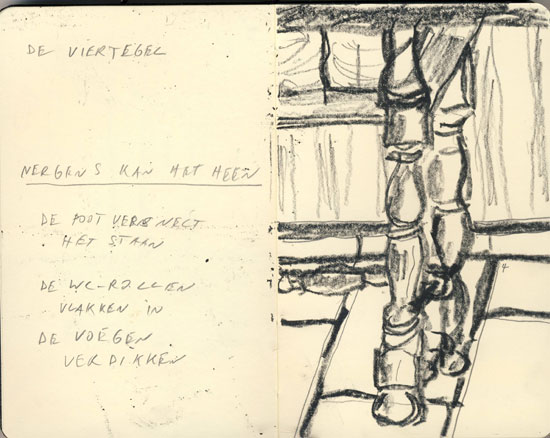 DE VIERTEGEL
NERGENS KAN HET HEEN
DE POOT
HET STAAN
DE WC-ROLLEN
VLAKKEN IN
DE VOEGEN
VERDIKKEN